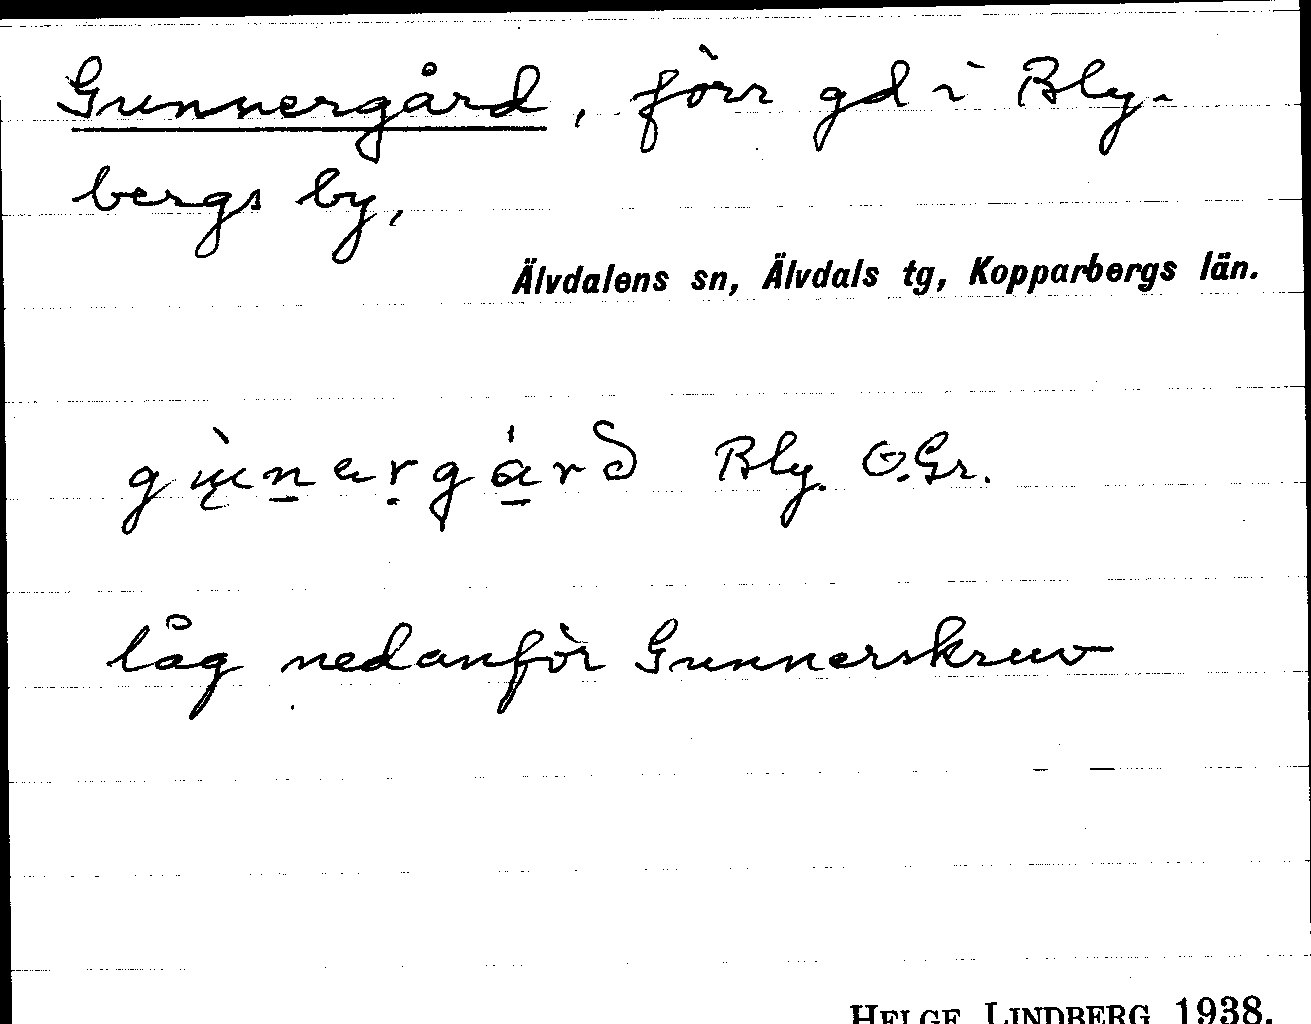 Gunnergård, förr gd i Bly-
bergs by,
Älvdalens sn, Älvdals tg, Kopparbergs län.
Bly. O.Gr.
låg nedanför Gunnerskruv
HELGE LINDBERG 1938.